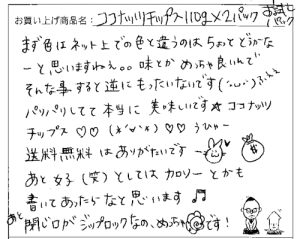 お買い上げ商品名：ココナッツチップス110g×2パック お試しパック
まず色はネット上での色と違うのはちょとどうかな
ーと思いますねぇ。。味とか めっちゃ良いんで
そんな事すると逆にもったいないです(´・ω・`)
パリパリしてて本当に 美味しいです☆ ココナッツ
チップス ♡♡ (*´∨`*) ♡♡ うひゃー
送料無料 は ありがたいですー
あと女子 (笑) としては カロリー とかも
書いてあったらなと思います ♫
あと閉じ口がジップロックなの、めっちゃ です!